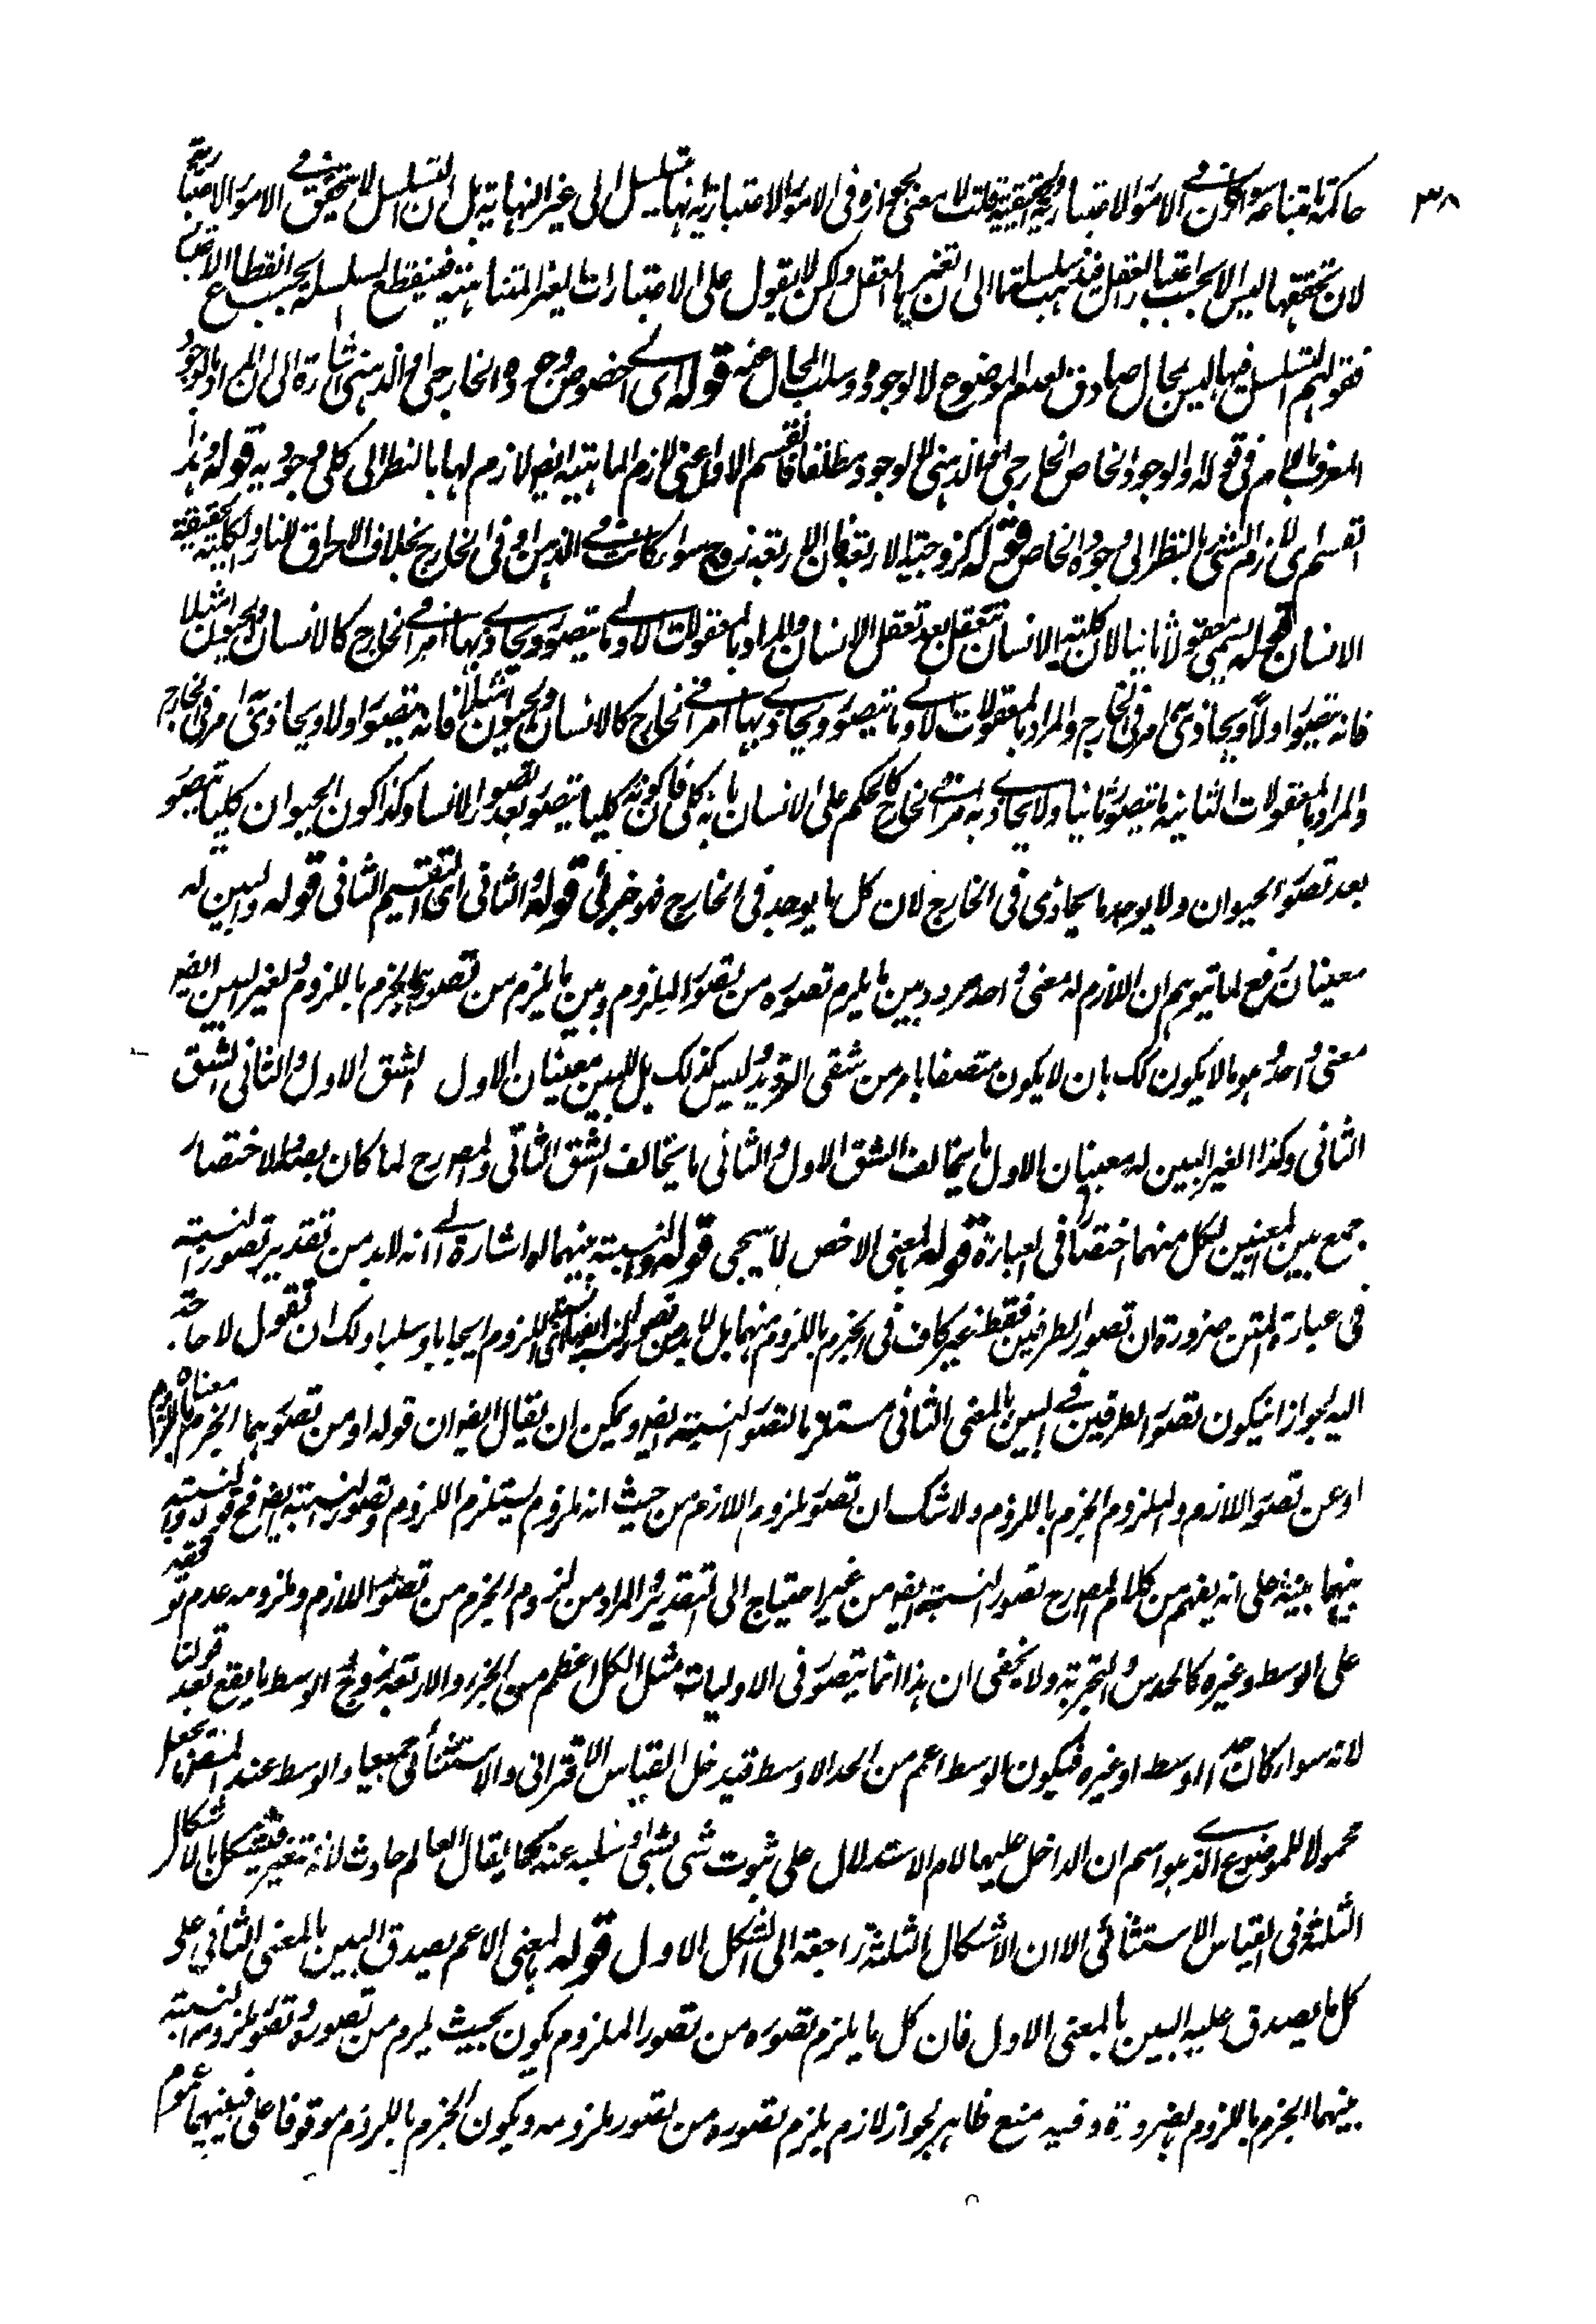 ٣٨
حاكمة بامتناعه سواء كان في الامور الاعتبارية او الحقيقية قلت لا معنى لجوازه في الامور الاعتبارية انها تتسلسل الى غير النهاية بل ان التسلسل لا يتحقق في الامور الاعتبارية
لان تحققها ليس الا بحسب اعتبار العقل فيذهب سلسلتها الى ان تعتبرها العقل ولكن لا يقول على الاعتبارات الغير المتناهية فينقطع السلسلة بحسب انقطاع الاعتبار
فقولهم التسلسل فيها ليس بمحال صادق لعدم الموضوع لا لوجوده وسلب المحال عنه قوله اى خصوص وجوده الخارجي او الذهني اشارة الى ان المراد بالوجود
المعرف باللام في قوله والوجود الخاص الخارجي او الذهني لا الوجود مطلقا فالقسم الاول اعنى لازم الماهية ايضا لازم لها بالنظر الى كلى وجوديه قوله وهذا
القسم اى لازم الشئ بالنظر الى وجوده الخاص قوله كزوجية الاربعة فان الاربعة زوج سواء كانت في الذهن او في الخارج بخلاف الاحراق للنار والكلية لحقيقة
الانسان قوله يسمى معقولا ثانيا لان كلية الانسان تتعقل بعد تعقل الانسان والمراد بالمعقولات الاولى ما يتصور ويحاذى بها امر في الخارج كالانسان والحيوان مثلا
فانه يتصور اولا ويحاذى شئ امر في الخارج والمراد بالمعقولات الاولى ما يتصور ويحاذى بها امر في الخارج كالانسان والحيوان مثلا فانه يتصور اولا ويحاذى شئ امر في الخارج
والمراد بالمعقولات الثانية ما يتصور ثانيا ولا يحاذى به امر في الخارج كالحكم على الانسان بانه كلى فان كونه كليا يتصور بعد تصور الانسان وكذا كون الحيوان كليا يتصور
بعد تصور الحيوان ولا يوجد ما يحاذى في الخارج لان كل ما يوجد في الخارج فهو جزئى قوله والثانى اى التقسيم الثانى قوله والبين له
معنيان رفع لما يتوهم ان اللازم له معنى واحد مردد بين ما يلزم تصوره من تصور الملزوم وبين ما يلزم من تصورهما الجزم باللزوم والغير البين ايضا
معنى واحد هو ما لا يكون كك بان لا يكون متصفا بامر من شقى الترديد وليس كذلك بل للبين معنيان الاول الشق الاول والثانى الشق
الثانى وكذا الغير البين له معنيان الاول ما يخالف الشق الاول والثانى ما يخالف الشق الثانى والمصرح لما كان بصدد الاختصار
جمع بين المعنيين لكل منهما اختصارا في العبارة قوله بالمعنى الاخص لما سيجى قوله والنسبة بينهما له اشارة الى انه لا بد من تقدير تصور النسبة
في عبارة المتن ضرورة ان تصور الطرفين فقط غير كاف في الجزم باللزوم منهما بل لا بد من تصور النسبة ايضا اى اللزوم ايجابا وسلبا ولك ان تقول لا حاجة
اليه لجواز ان يكون تصور الطرفين في البين بالمعنى الثانى مستلزما لتصور النسبة ايضا ويمكن ان يقال ايضا ان قوله او من تصورهما الجزم باللزوم معناه
او عن تصور اللازم والملزوم الجزم باللزوم ولا شك ان تصور ملزوم اللازم من حيث انه ملزوم يستلزم اللزوم وتصور النسبة ايضا فح قوله والنسبة
بينهما بينة على انه يفهم من كلام المصرح تصور النسبة ايضا من غير احتياج الى التقدير والمراد من لزوم الجزم من تصور اللازم وملزومه عدم توقفه
على الوسط وغيره كالحدس والتجربة ولا يخفى ان هذا انما يتصور في الاوليات مثل الكل اعظم من الجزء والاربعة زوج والوسط ما يقع بعد قولنا
لانه سواء كان حد الوسط او غيره فيكون الوسط اعم من الحد الاوسط فيدخل القياس الاقترانى والاستثنائى جميعا والوسط عند المنطقى ما يجعل
محمولا للموضوع الذى هو اسم ان الداخل عليها لام الاستدلال على ثبوت شئ بشئ او سلبه عنه كما يقال العالم حادث لانه متغير فيشكل بالاشكال
الثلثة وفى القياس الاستثنائى الا ان الاشكال الثلثة راجعة الى الشكل الاول قوله بالمعنى الاعم يصدق البين بالمعنى الثانى على
كل ما يصدق عليه البين بالمعنى الاول فان كل ما يلزم تصوره من تصور الملزوم يكون بحيث يلزم من تصوره وتصور ملزومه والنسبة
بينهما الجزم باللزوم بالضرورة وفيه منع ظاهر لجواز لازم يلزم تصوره من تصور ملزومه ويكون الجزم باللزوم موقوفا على فبينهما عموم